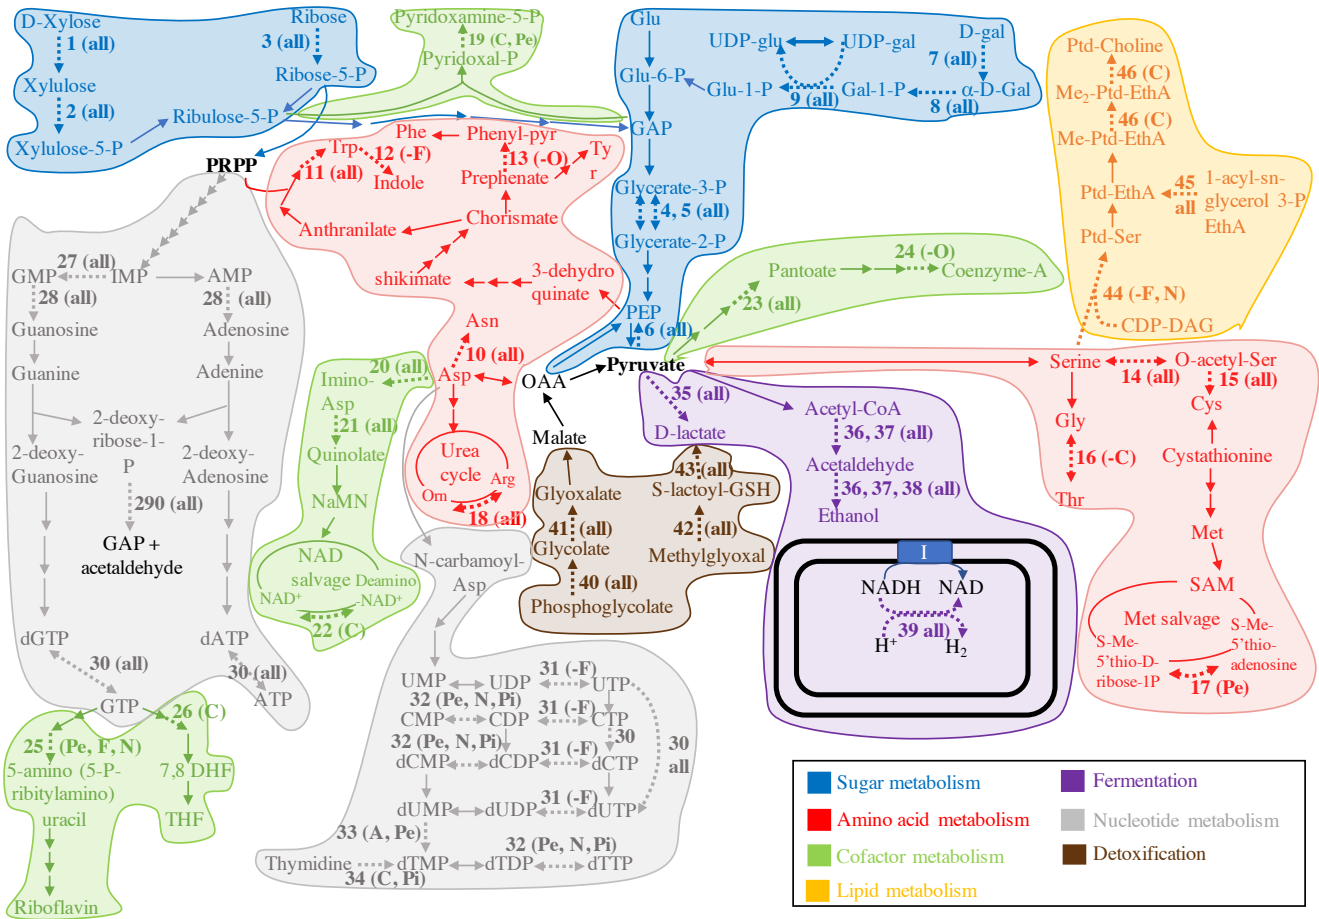 D-Xylose
1 (all)
Xylulose
2 (all)
Xylulose-5-P
Ribose
3 (all)
Ribose-5-P
Ribulose-5-P
PRPP
Pyridoxamine-5-P
19 (C, Pe)
Pyridoxal-P
Glu
Glu-6-P
GAP
Glycerate-3-P
4, 5 (all)
Glycerate-2-P
PEP
6 (all)
Pyruvate
UDP-glu
UDP-gal
D-gal
7 (all)
Glu-1-P
9 (all)
Gal-1-P
8 (all)
α-D-Gal
Ptd-Choline
46 (C)
Me2-Ptd-EthA
46 (C)
Me-Ptd-EthA
Ptd-EthA
45
all
1-acyl-sn-
glycerol 3-P
EthA
Ptd-Ser
44 (-F, N)
CDP-DAG
Phe
Phenyl-pyr
Trp
12 (-F)
13 (-O)
Ty
r
11 (all)
Indole
Prephenate
Anthranilate
Chorismate
shikimate
3-dehydro
quinate
Asn
10 (all)
Asp
Urea
cycle
Orn
Arg
18 (all)
OAA
Malate
Pantoate
24 (-O)
Coenzyme-A
23 (all)
27 (all)
GMP
IMP
AMP
28 (all)
28 (all)
Guanosine
Adenosine
Guanine
Adenine
2-deoxy-
ribose-1-
P
2-deoxy-
Guanosine
2-deoxy-
Adenosine
290 (all)
GAP +
acetaldehyde
dGTP
dATP
30 (all)
30 (all)
GTP
ATP
20 (all)
Imino-
Asp
21 (all)
Quinolate
NaMN
NAD
salvage
Deamino
-NAD+
NAD+
22 (C)
25 (Pe, F, N)
5-amino (5-P-
ribitylamino)
uracil
Riboflavin
26 (C)
7,8 DHF
THF
N-carbamoyl-
Asp
UMP
UDP
31 (-F)
UTP
32 (Pe, N, Pi)
CMP
CDP
31 (-F)
CTP
32 (Pe, N, Pi)
30
30
all
dCMP
dCDP
31 (-F)
dCTP
dUMP
dUDP
31 (-F)
dUTP
33 (A, Pe)
32 (Pe, N, Pi)
Thymidine
dTMP
dTDP
dTTP
34 (C, Pi)
Glyoxalate
41 (all)
Glycolate
40 (all)
Phosphoglycolate
43 (all)
S-lactoyl-GSH
42 (all)
Methylglyoxal
35 (all)
D-lactate
Acetyl-CoA
36, 37 (all)
Acetaldehyde
36, 37, 38 (all)
Ethanol
I
NADH
NAD
39 all)
H+
H2
Serine
14 (all)
O-acetyl-Ser
15 (all)
Cys
Gly
16 (-C)
Thr
Cystathionine
Met
SAM
Met salvage
S-Me-
5'thio-D-
ribose-1P
S-Me-
5'thio-
adenosine
17 (Pe)
Sugar metabolism
Amino acid metabolism
Cofactor metabolism
Lipid metabolism
Fermentation
Nucleotide metabolism
Detoxification